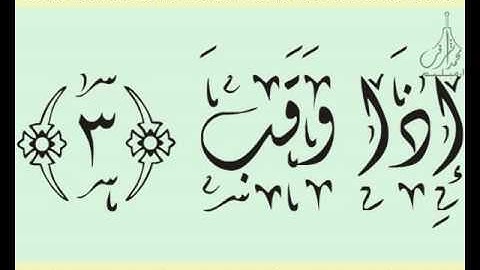 إِذَا وَقَبَ ﴿٣﴾